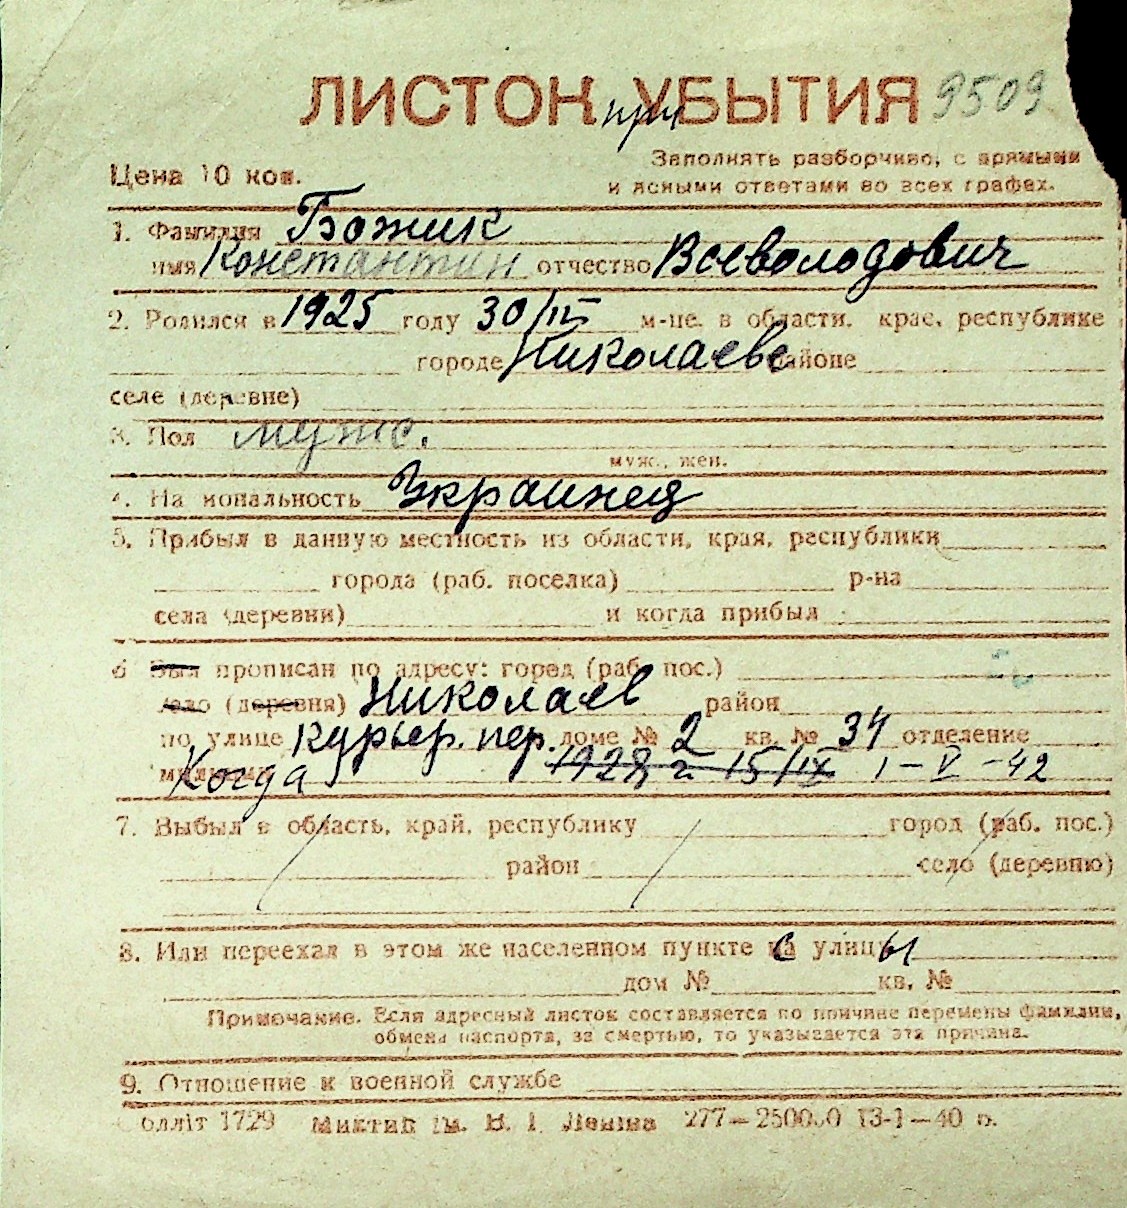 ЛИСТОК при УБЫТИЯ 9509
Цена 10 коп.
Заполнять разборчиво, с прямыми
и ясными ответами во всех графах.
1. Фамилия Божик
имя Константин отчество Всеволодович
2. Родился в 1925 году 30/III м-це. в области, крае, республике
городе Николаеве районе
селе (деревне)
3. Пол муж.
муж., жен.
4. Национальность Украинец
5. Прибыл в данную местность из области, края, республики
города (раб. поселка) р-на
села (деревни) и когда прибыл
6 Был прописан по адресу: город (раб. пос.)
село (деревня) Николаев район
по улице Курьер. пер. доме № 2 кв. № 34 отделение
милиции Когда 1928 г. 15/IX 1-V-42
7. Выбыл в область, край, республику город (раб. пос.)
район село (деревню)
8. Или переехал в этом же населенном пункте с улицы
дом № кв. №
Примечание. Если адресный листок составляется по причине перемены фамилии,
обмена паспорта, за смертью, то указывается эта причина.
9. Отношение к военной службе
Облліт 1729 Миктип ім. В. І. Леніна 277—250000 13-1—40 р.